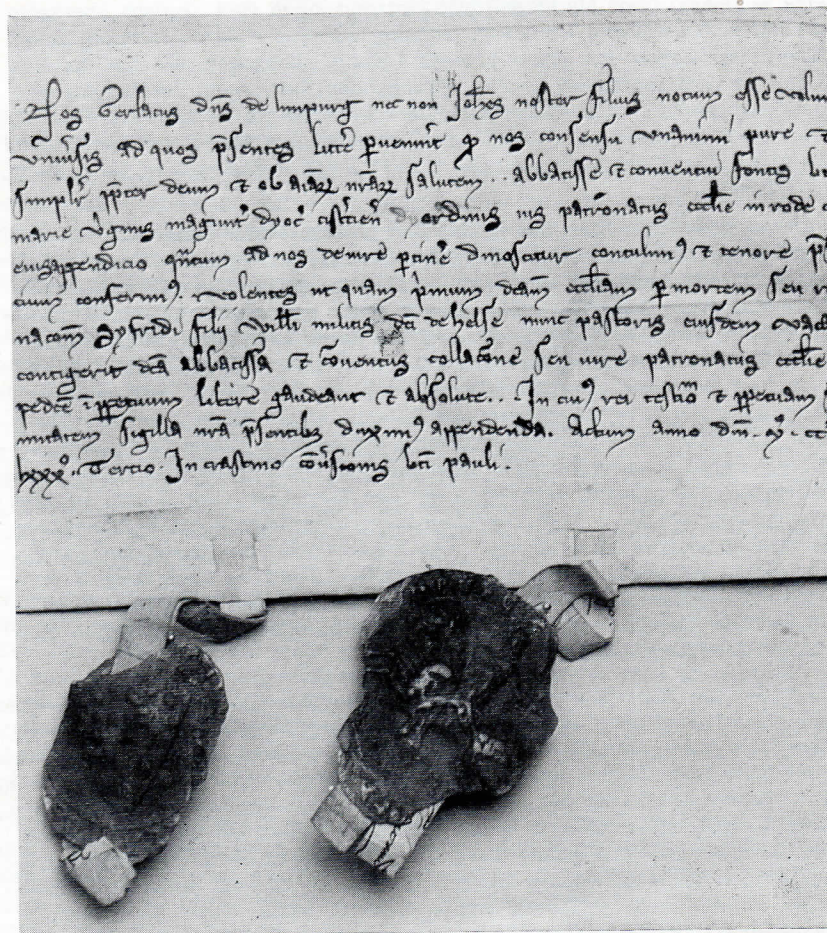 Nos Gerlacus dn̄s de limpurg nec non Joh̄es noster filius notum esse volum
Vniu̾sis ad quos p̄sentes litt̾e p̱uenerint qd nos consensu vnanimi pure et
simplr̄ ꝓpter deum et ob aīaꝝ nr̄aꝝ salutem .. abbatisse et conventui fontis
marie v̾ginis magunt̄ dyoc̄ cist̾cien̄ ordinis ius patronatus eccl̄ie in rode
eiusappendicio qn̄tum ad nos de iure p̱tin̾e dinoscitur contulim⁹ et tenore
cium conferim⁹. volentes ut quam p̾mum dc̄am eccl̄iam p̱ mortem seu
nacōm Syfridi filii Will̄i militis dc̄i de helse nunc pastoris eiusdem
contigerit dc̄a abbatissa et conuentus collacōne seu iure patronatus eccl̄ie
ī ꝑpetuum libere gaudeant et absolute .. In cui⁹ rei testīo et ꝑpetuam
sigilla nr̄a p̄sentibus duxim⁹ appendenda. Actum anno dn̄i. mͦ. cc
lxxxͦ.. Tercio. In crastino conu̾sionis bt̄i pauli.